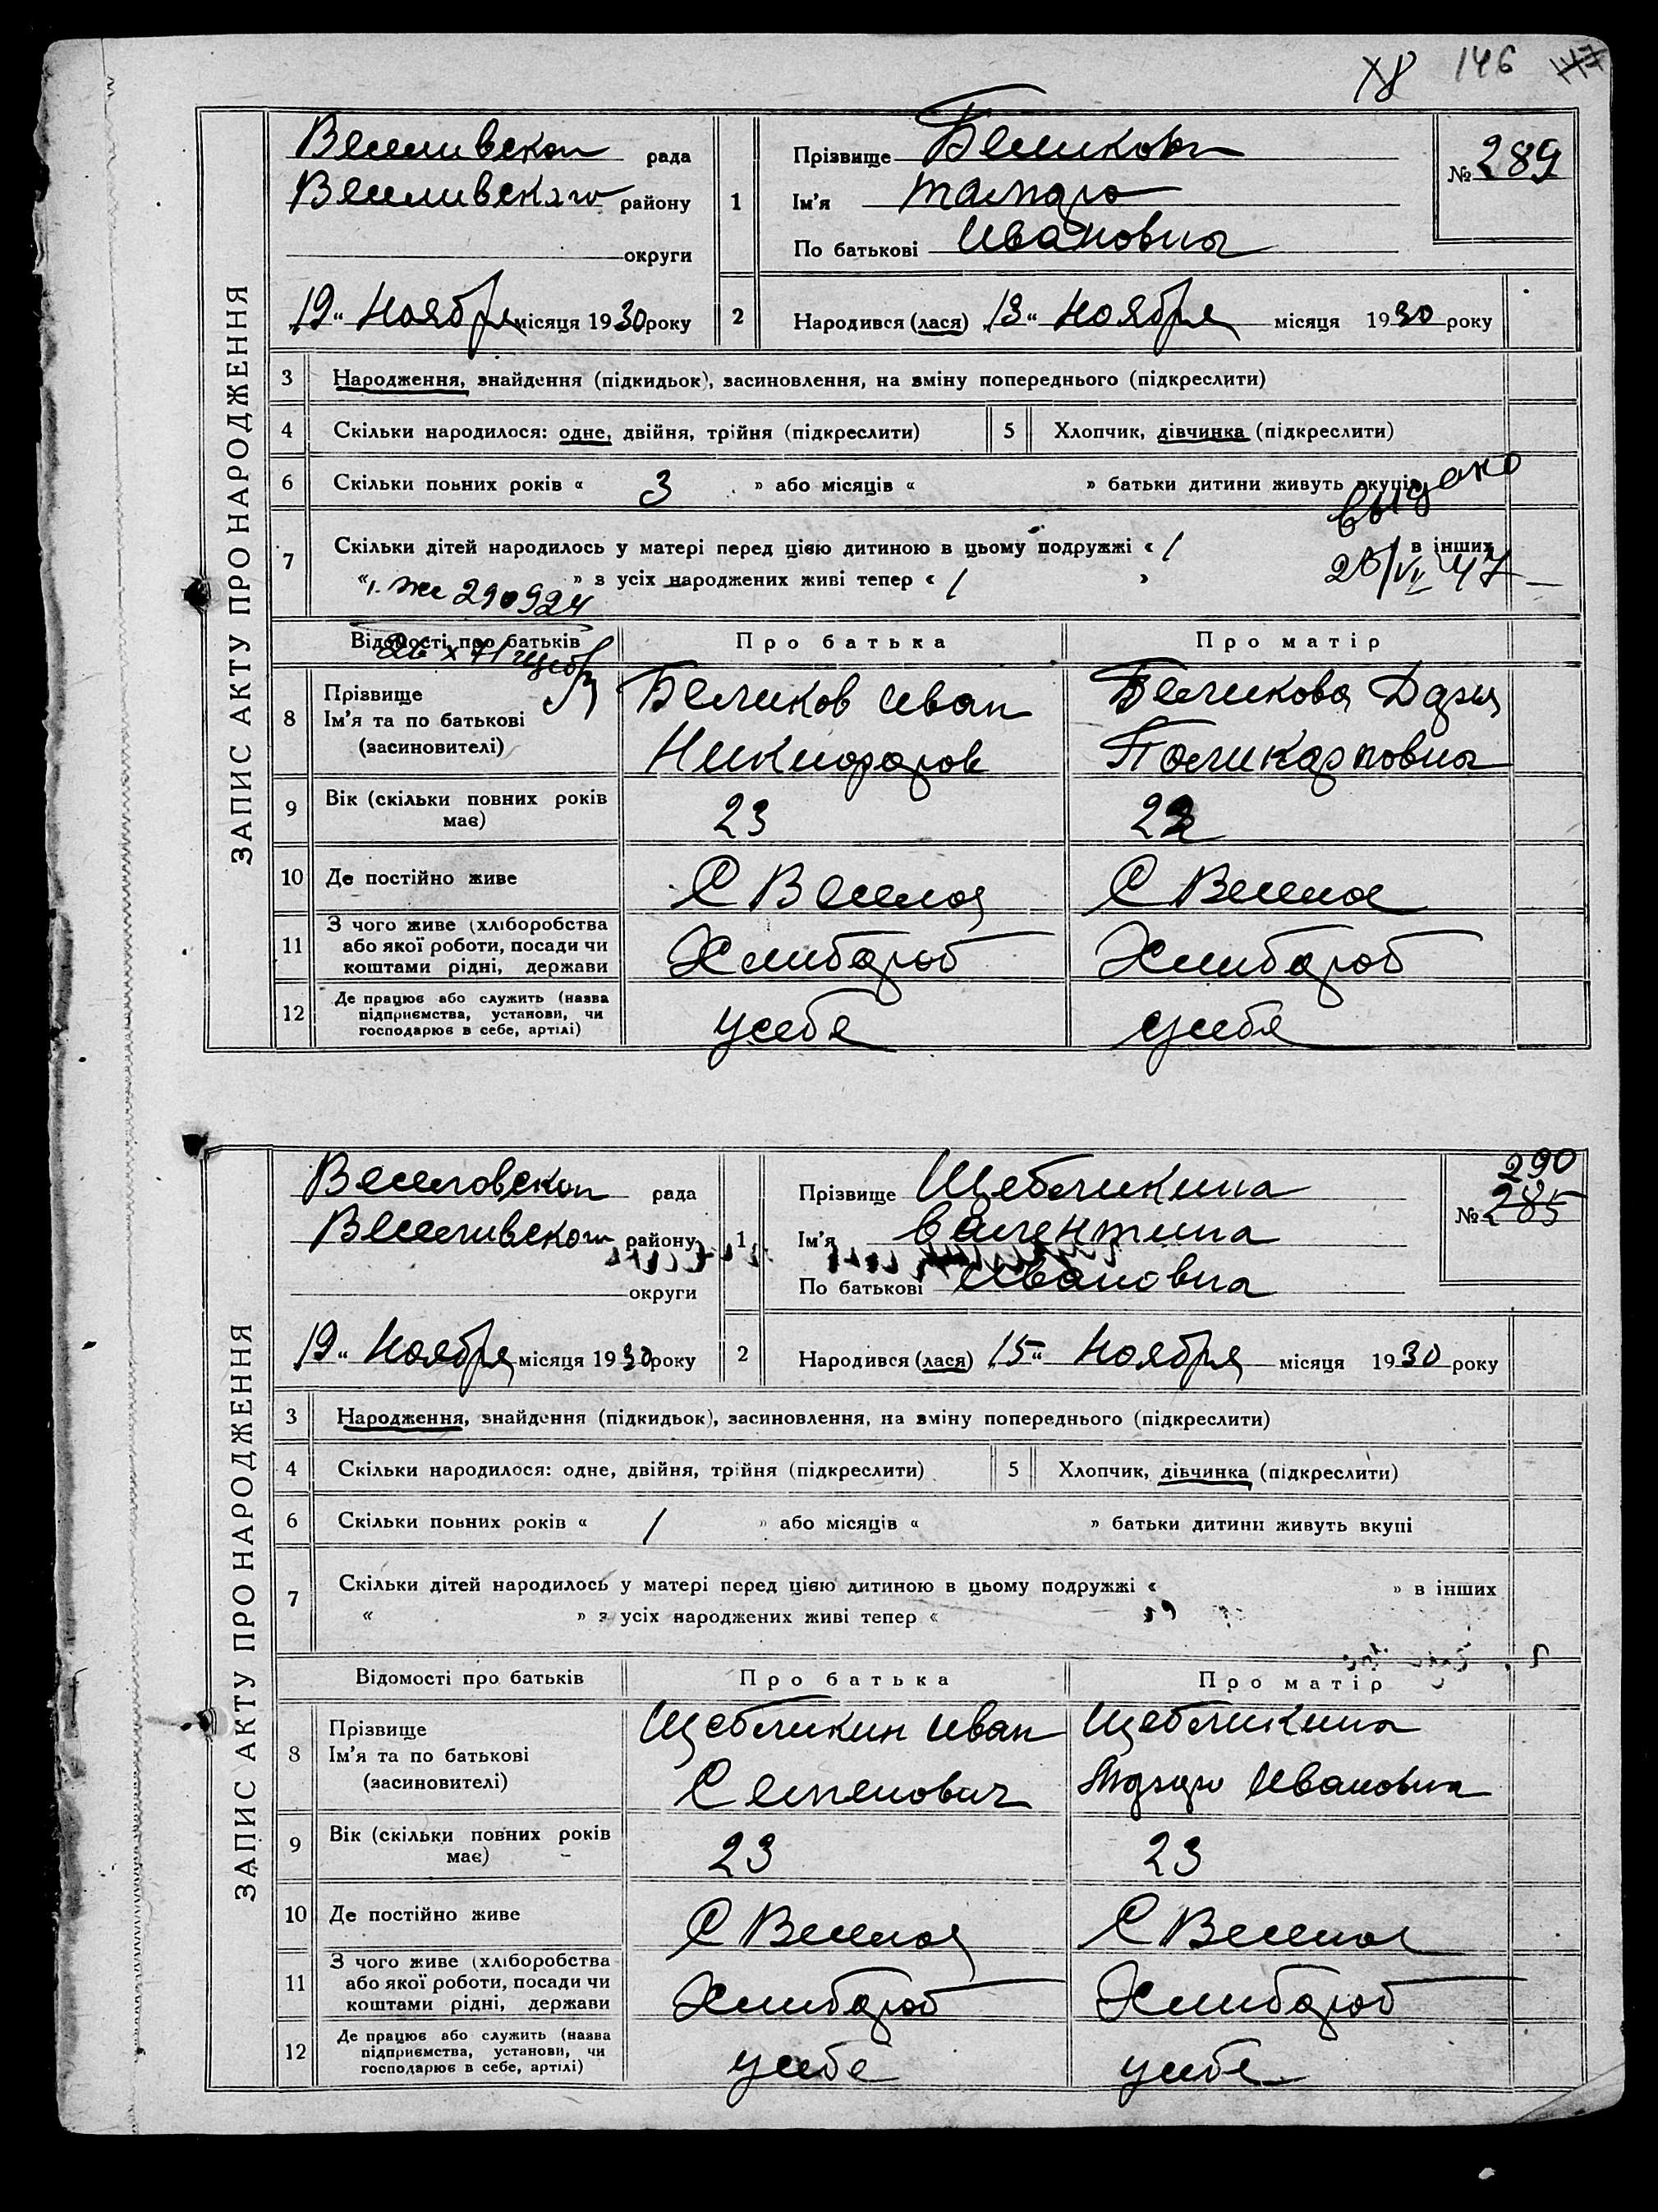 146
ЗАПИС АКТУ ПРО НАРОДЖЕННЯ
рада
району
округи
19" Ноября місяця 1930 року
1
Прізвище Беликова
Ім'я Тамара
По батькові Ивановна
№ 289
2
Народився (лася) 13" Ноября місяця 1930 року
3 Народження, знайдення (підкидьок), засиновлення, на зміну попереднього (підкреслити)
4 Скільки народилося: одне, двійня, трійня (підкреслити)
5 Хлопчик, дівчинка (підкреслити)
6 Скільки повних років « 3 » або місяців « » батьки дитини живуть вкупі
выдано
7 Скільки дітей народилось у матері перед цією дитиною в цьому подружжі « 1 в інших
« » з усіх народжених живі тепер « 1 »
47
290924
Відомості про батьків Про батька Про матір
8 Прізвище
Ім'я та по батькові
(засиновителі)
Беликов Иван
Никифоров
Беликова Дарья
Поликарповна
9 Вік (скільки повних років
має)
23
22
10 Де постійно живе
С Веселое
С Веселое
11 З чого живе (хліборобства
або якої роботи, посади чи
коштами рідні, держави
Хлибороб
Хлибороб
12 Де працює або служить (назва
підприємства, установи, чи
господарює в себе, артілі)
у себе
у себе
ЗАПИС АКТУ ПРО НАРОДЖЕННЯ
рада
району
округи
19" Ноября місяця 1930 року
1
Прізвище Щебликина
Ім'я Валентина
По батькові Ивановна
290
№ 285
2
Народився (лася) 15" Ноября місяця 1930 року
3 Народження, знайдення (підкидьок), засиновлення, на зміну попереднього (підкреслити)
4 Скільки народилося: одне, двійня, трійня (підкреслити)
5 Хлопчик, дівчинка (підкреслити)
6 Скільки повних років « 1 » або місяців « » батьки дитини живуть вкупі
7 Скільки дітей народилось у матері перед цією дитиною в цьому подружжі « » в інших
« » з усіх народжених живі тепер «
Відомості про батьків Про батька Про матір
8 Прізвище
Ім'я та по батькові
(засиновителі)
Щебликин Иван
Семенович
Щебликина
Ивановна
9 Вік (скільки повних років
має)
23
23
10 Де постійно живе
С Веселое
С Веселое
11 З чого живе (хліборобства
або якої роботи, посади чи
коштами рідні, держави
Хлибороб
Хлибороб
12 Де працює або служить (назва
підприємства, установи, чи
господарює в себе, артілі)
у себе
у себе